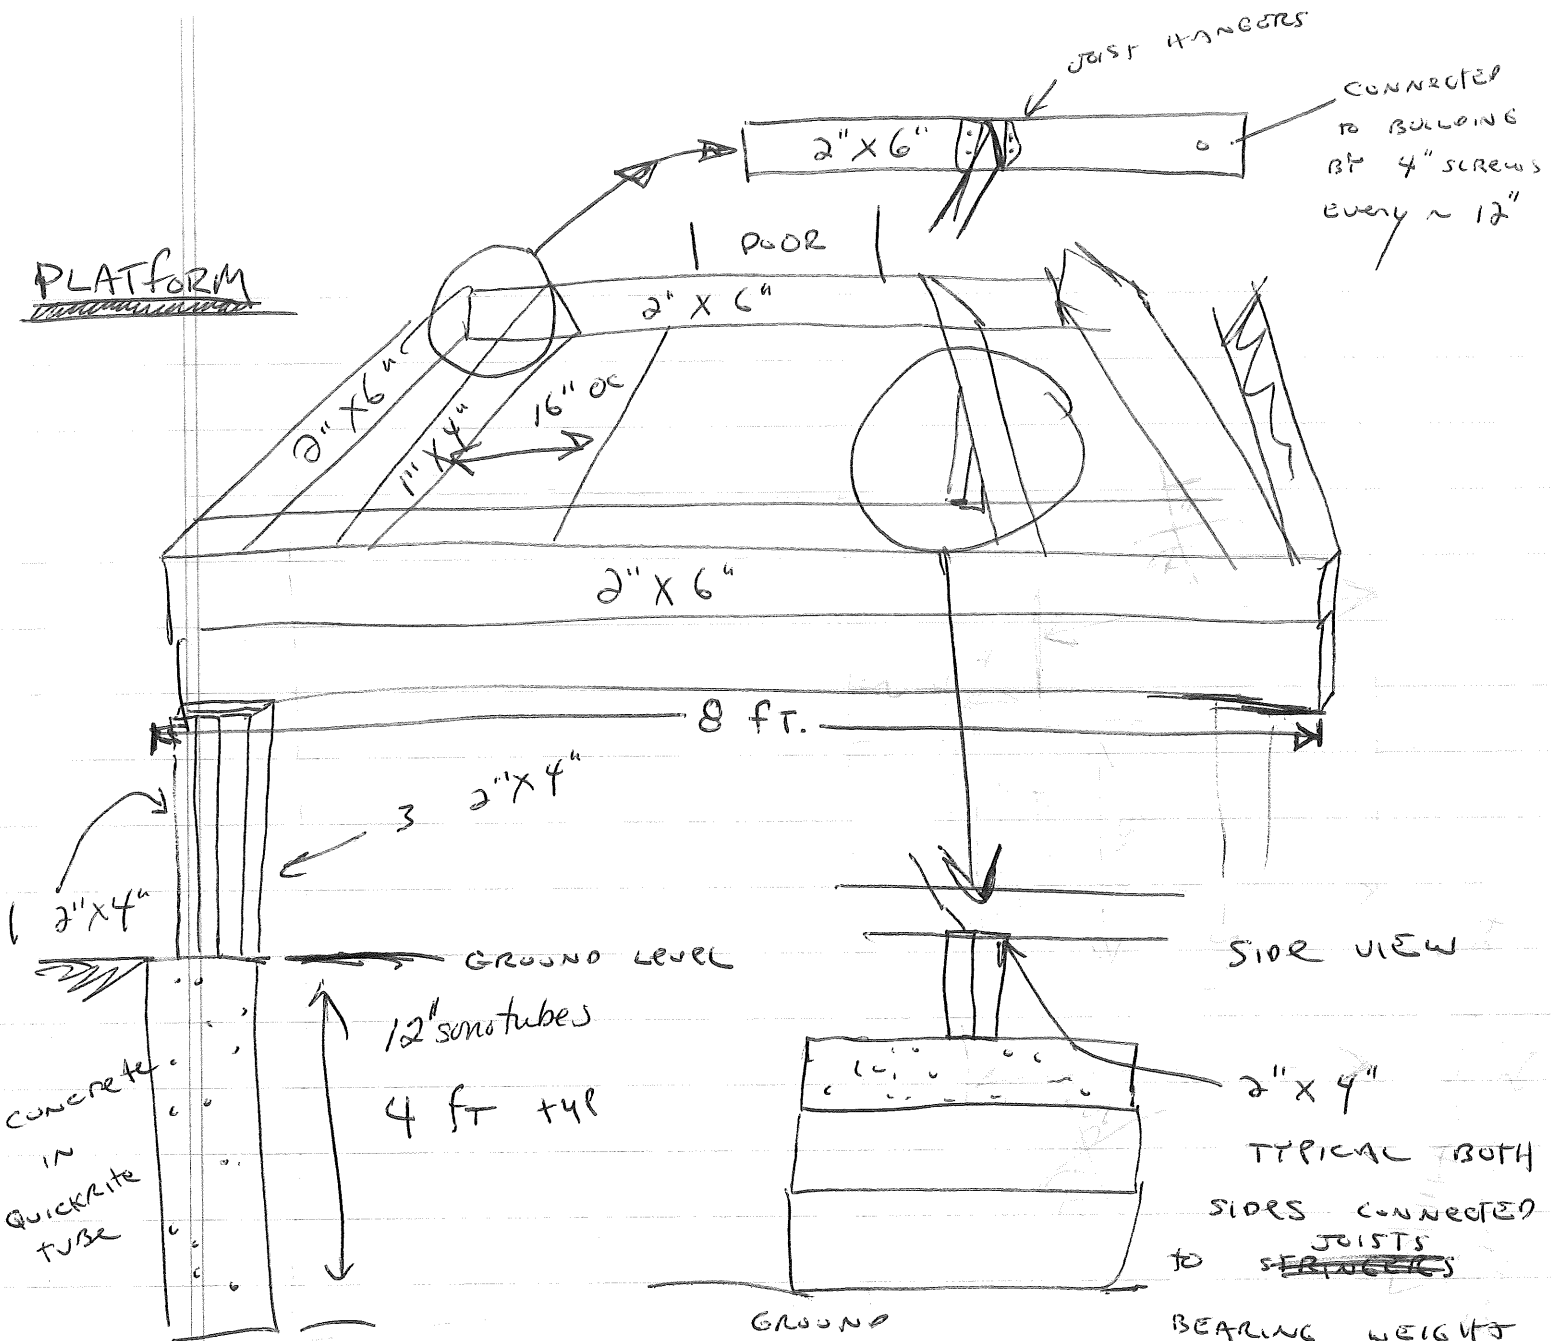 JOIST HANGERS
CONNECTED
TO BUILDING
BY 4" SCREWS
EVERY ~ 12"
2" X 6"
DOOR
PLATFORM
2" X 6"
2" X 6"
16" OC
1" X 4"
2" X 6"
8 FT.
3 2" X 4"
1 2" X 4"
GROUND LEVEL
SIDE VIEW
12" sonotubes
4 FT TYP
CONCRETE
IN
QUICKRITE
TUBE
2" X 4"
TYPICAL BOTH
SIDES CONNECTED
TO JOISTS
BEARING WEIGHT
GROUND